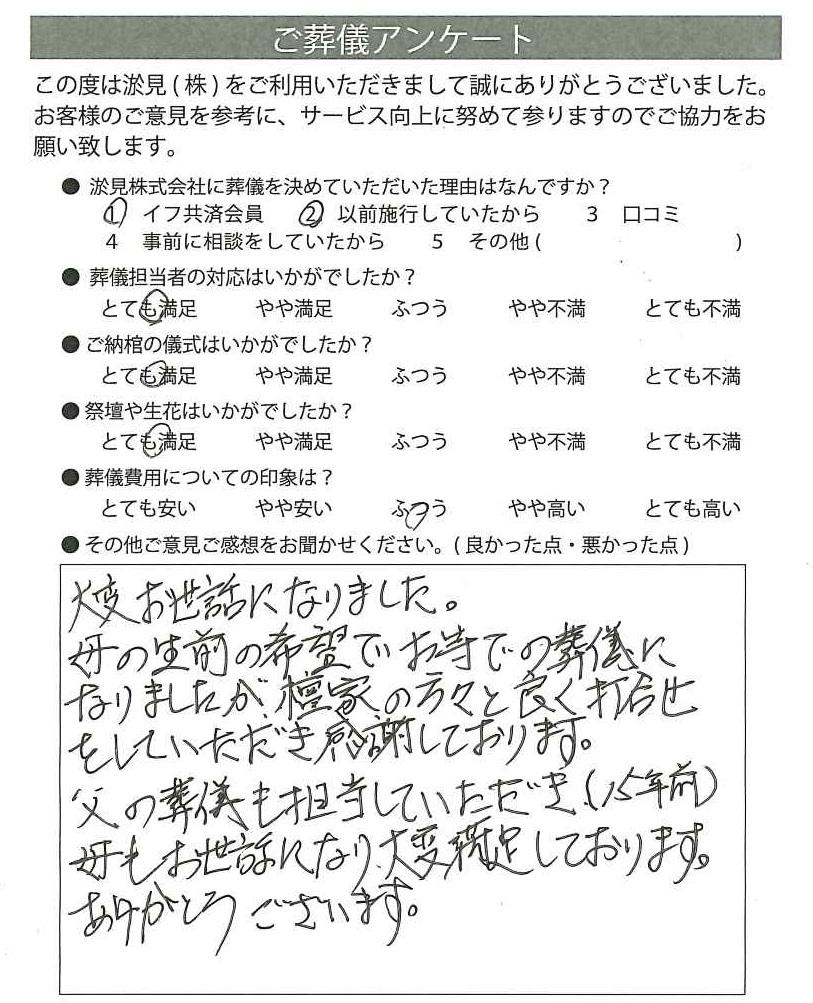 ご葬儀アンケート
この度は淤見(株)をご利用いただきまして誠にありがとうございました。
お客様のご意見を参考に、サービス向上に努めて参りますのでご協力をお
願い致します。
● 淤見株式会社に葬儀を決めていただいた理由はなんですか?
1 イフ共済会員 2 以前施行していたから 3 口コミ
4 事前に相談をしていたから 5 その他( )
● 葬儀担当者の対応はいかがでしたか?
とても満足 やや満足 ふつう やや不満 とても不満
● ご納棺の儀式はいかがでしたか?
とても満足 やや満足 ふつう やや不満 とても不満
● 祭壇や生花はいかがでしたか?
とても満足 やや満足 ふつう やや不満 とても不満
● 葬儀費用についての印象は?
とても安い やや安い ふつう やや高い とても高い
● その他ご意見ご感想をお聞かせください。(良かった点・悪かった点)
大変お世話になりました。
母の生前の希望でお寺での葬儀に
なりましたが、檀家の方々と良く打合せ
をしていただき感謝しております。
父の葬儀も担当していただき(15年前)
母もお世話になり、大変満足しております。
ありがとうございます。